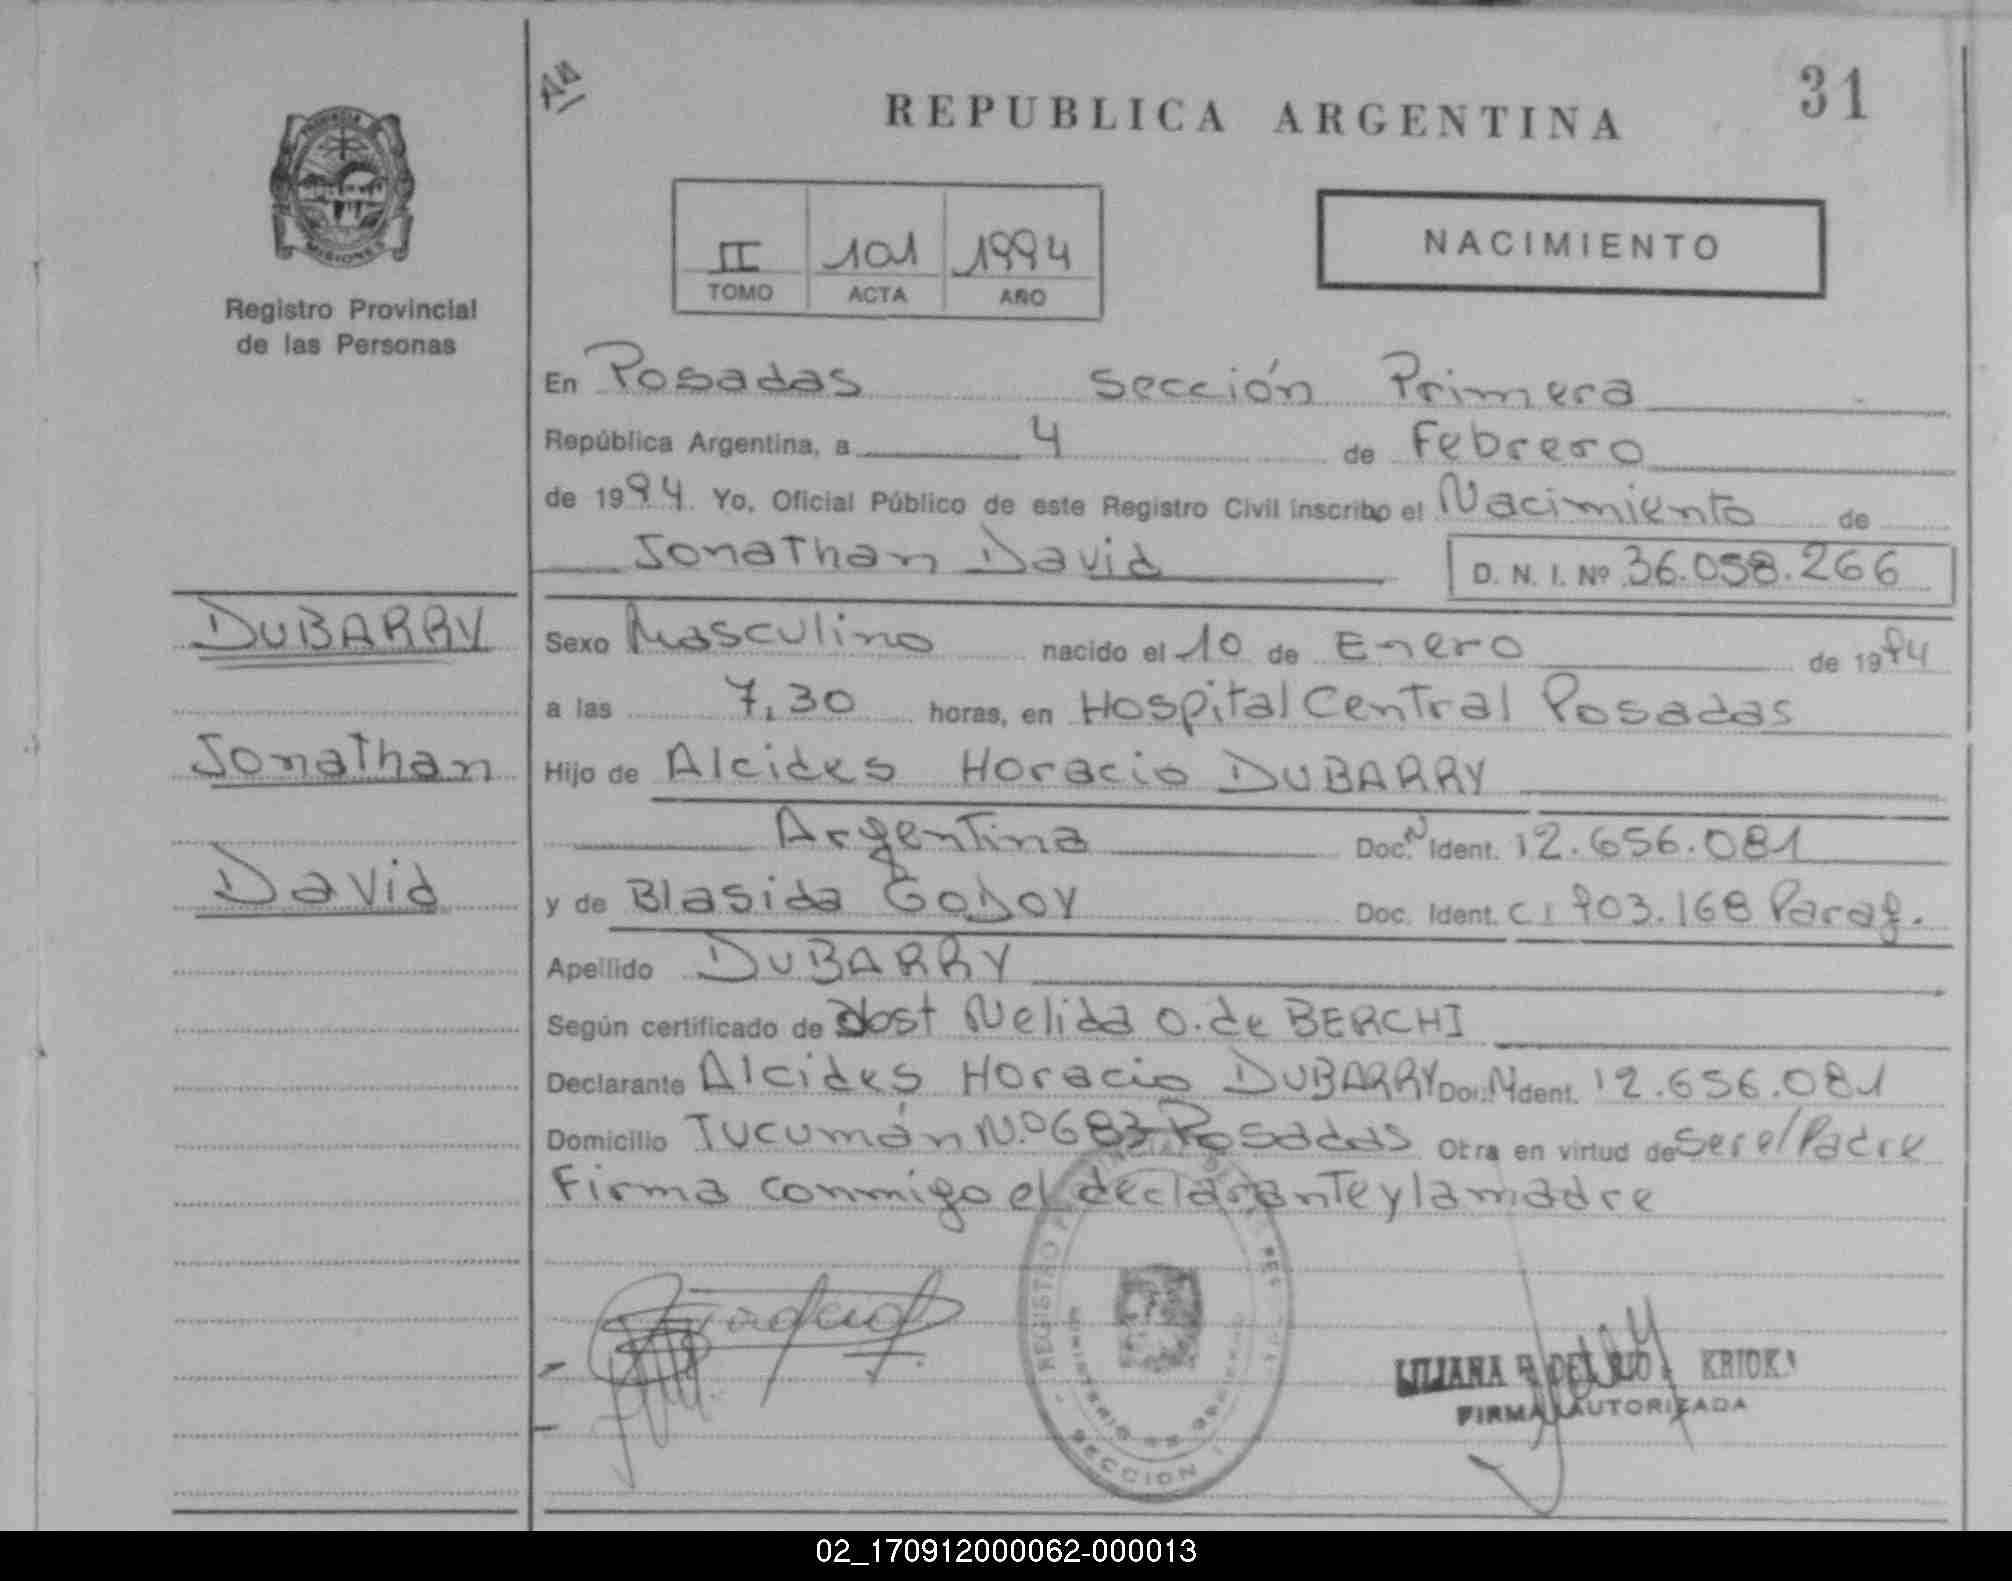 REPUBLICA ARGENTINA
31
PROVINCIA
MISIONES
Registro Provincial
de las Personas
II 101 1994
TOMO ACTA AÑO
NACIMIENTO
En Posadas Sección Primera
República Argentina, a 4 de Febrero
de 1994. Yo, Oficial Público de este Registro Civil inscribo el Nacimiento de
Jonathan David D. N. I. Nº 36.058.266
DUBARRY
Sexo Masculino nacido el 10 de Enero de 1994
a las 7,30 horas, en Hospital Central Posadas
Jonathan
Hijo de Alcides Horacio DUBARRY
Argentina Doc. N Ident. 12.656.081
David
y de Blasida GODOY Doc. Ident. CI 903.168 Parag.
Apellido DUBARRY
Según certificado de Obst Nelida O. de BERCHI
Declarante Alcides Horacio DUBARRY Doc. N Ident. 12.656.081
Domicilio Tucumán N.º 683 Posadas Otra en virtud de Ser el Padre
Firma conmigo el declarante y la madre
REGISTRO
MINISTERIO DE GOBIERNO
SECCION
LILIANA R DEL RIO
FIRMA AUTORIZADA
02_170912000062-000013